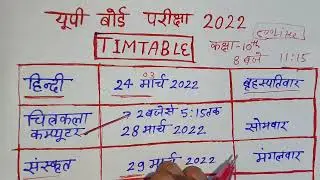 यूपी बोर्ड परीक्षा 2022
TIMTABLE
कक्षा-10th
8 बजे 11:15
हिन्दी 24 मार्च 2022 बृहस्पतिवार
03
चित्रकला 2 बजे से 5:15 तक
कम्प्यूटर 28 मार्च 2022 सोमवार
संस्कृत 29 मार्च 2022 मंगलवार